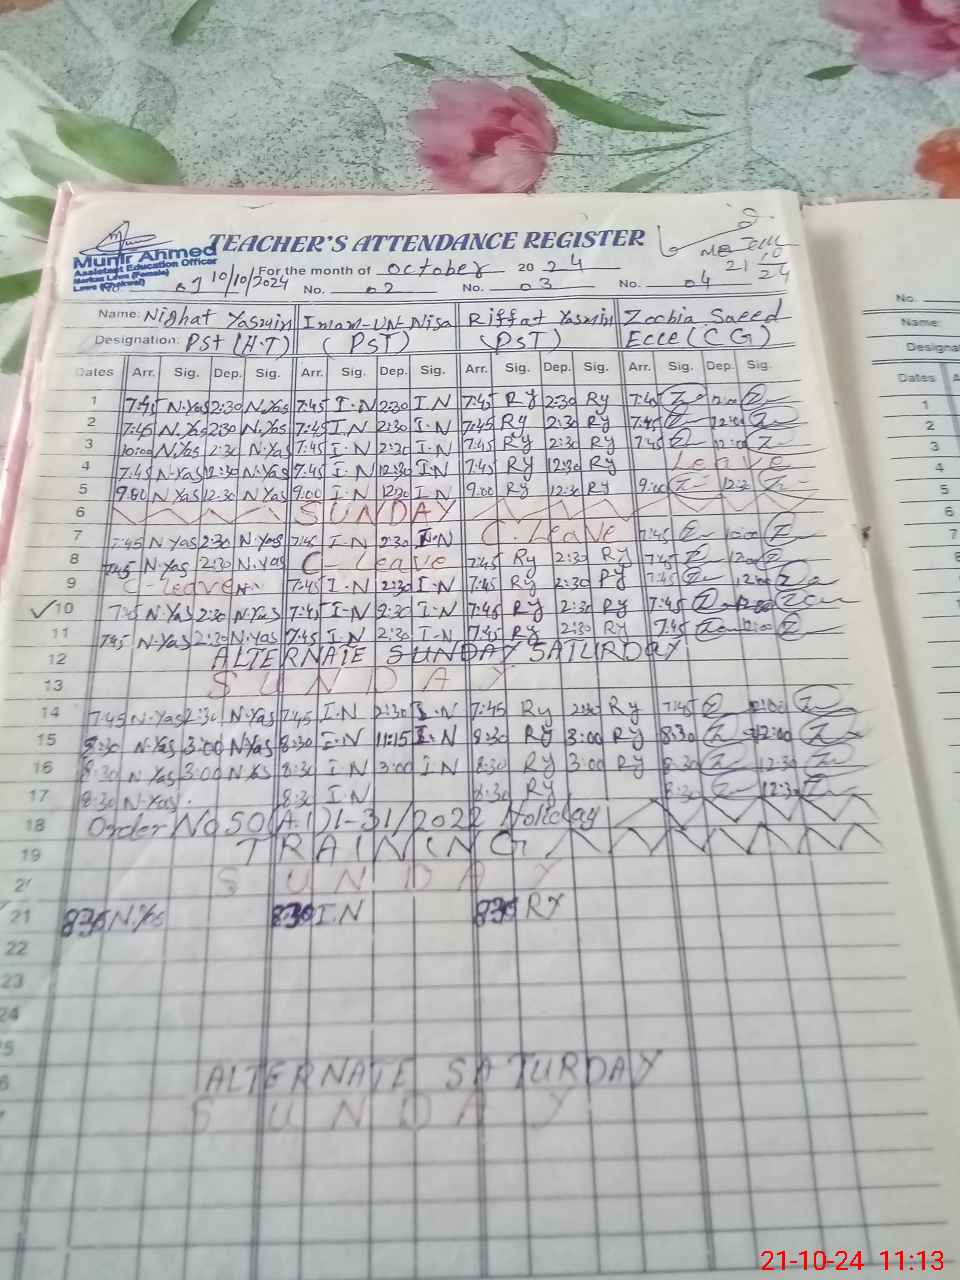 TEACHER'S ATTENDANCE REGISTER
Munir Ahmed
Assistant Education Officer
Markaz Lawa (Female)
Lawa (Chakwal)
10/10/2024
For the month of October 2024
21 10 24
No. 01 No. 02 No. 03 No. 04
Name: Nighat Yasmin Imam-UN-Nisa Riffat Yasmin Zoobia Saeed
Designation: PST (H.T) (PST) (PST) Ecce (CG)
Dates Arr. Sig. Dep. Sig. Arr. Sig. Dep. Sig. Arr. Sig. Dep. Sig. Arr. Sig. Dep. Sig.
1 7:45 N.Yas 2:30 N.Yas 7:45 I.N 2:30 I.N 7:45 Ry 2:30 Ry 7:45
2 7:45 N.Yas 2:30 N.Yas 7:45 I.N 2:30 I.N 7:45 Ry 2:30 Ry 7:45 12:00
3 10:00 N.Yas 2:30 N.Yas 7:45 I.N 2:30 I.N 7:45 Ry 2:30 Ry 7:45 12:00
4 7:45 N.Yas 12:30 N.Yas 7:45 I.N 12:30 I.N 7:45 Ry 12:30 Ry Leave
5 9:00 N.Yas 12:30 N.Yas 9:00 I.N 12:30 I.N 9:00 Ry 12:30 Ry 9:00 12:30
6 SUNDAY
7 7:45 N.Yas 2:30 N.Yas 7:45 I.N 2:30 I.N C.Leave 7:45
8 7:45 N.Yas 2:30 N.Yas C-Leave 7:45 Ry 2:30 Ry 7:45 12:00
9 C-Leave 7:45 I.N 2:30 I.N 7:45 Ry 2:30 Ry 7:45 12:00
10 7:45 N.Yas 2:30 N.Yas 7:45 I-N 2:30 I-N 7:45 Ry 2:30 Ry 7:45
11 7:45 N.Yas 2:30 N.Yas 7:45 I.N 2:30 I-N 7:45 Ry 2:30 Ry 7:45 12:00
12 ALTERNATE SUNDAY SATURDAY
13 SUNDAY
14 7:45 N.Yas 2:30 N.Yas 7:45 I.N 2:30 I.N 7:45 Ry 2:30 Ry 7:45 12:00
15 8:30 N.Yas 3:00 N.Yas 8:30 I.N 11:15 I.N 8:30 Ry 3:00 Ry 8:30 12:00
16 8:30 N.Yas 3:00 N.Yas 8:30 I.N 3:00 I.N 8:30 Ry 3:00 Ry 8:30 12:30
17 8:30 N.Yas. 8:30 I.N 8:30 Ry 8:30 12:30
18 Order No SO(A.I)1-31/2022 Holiday
19 TRAINING
SUNDAY
21 8:30 N.Yas 8:30 I.N 8:30 Ry
22
23
24
5
6 ALTERNATE SATURDAY
SUNDAY
No.
Name:
Designa
Dates A
1
2
3
4
5
6
7
8
9
1
21-10-24 11:13